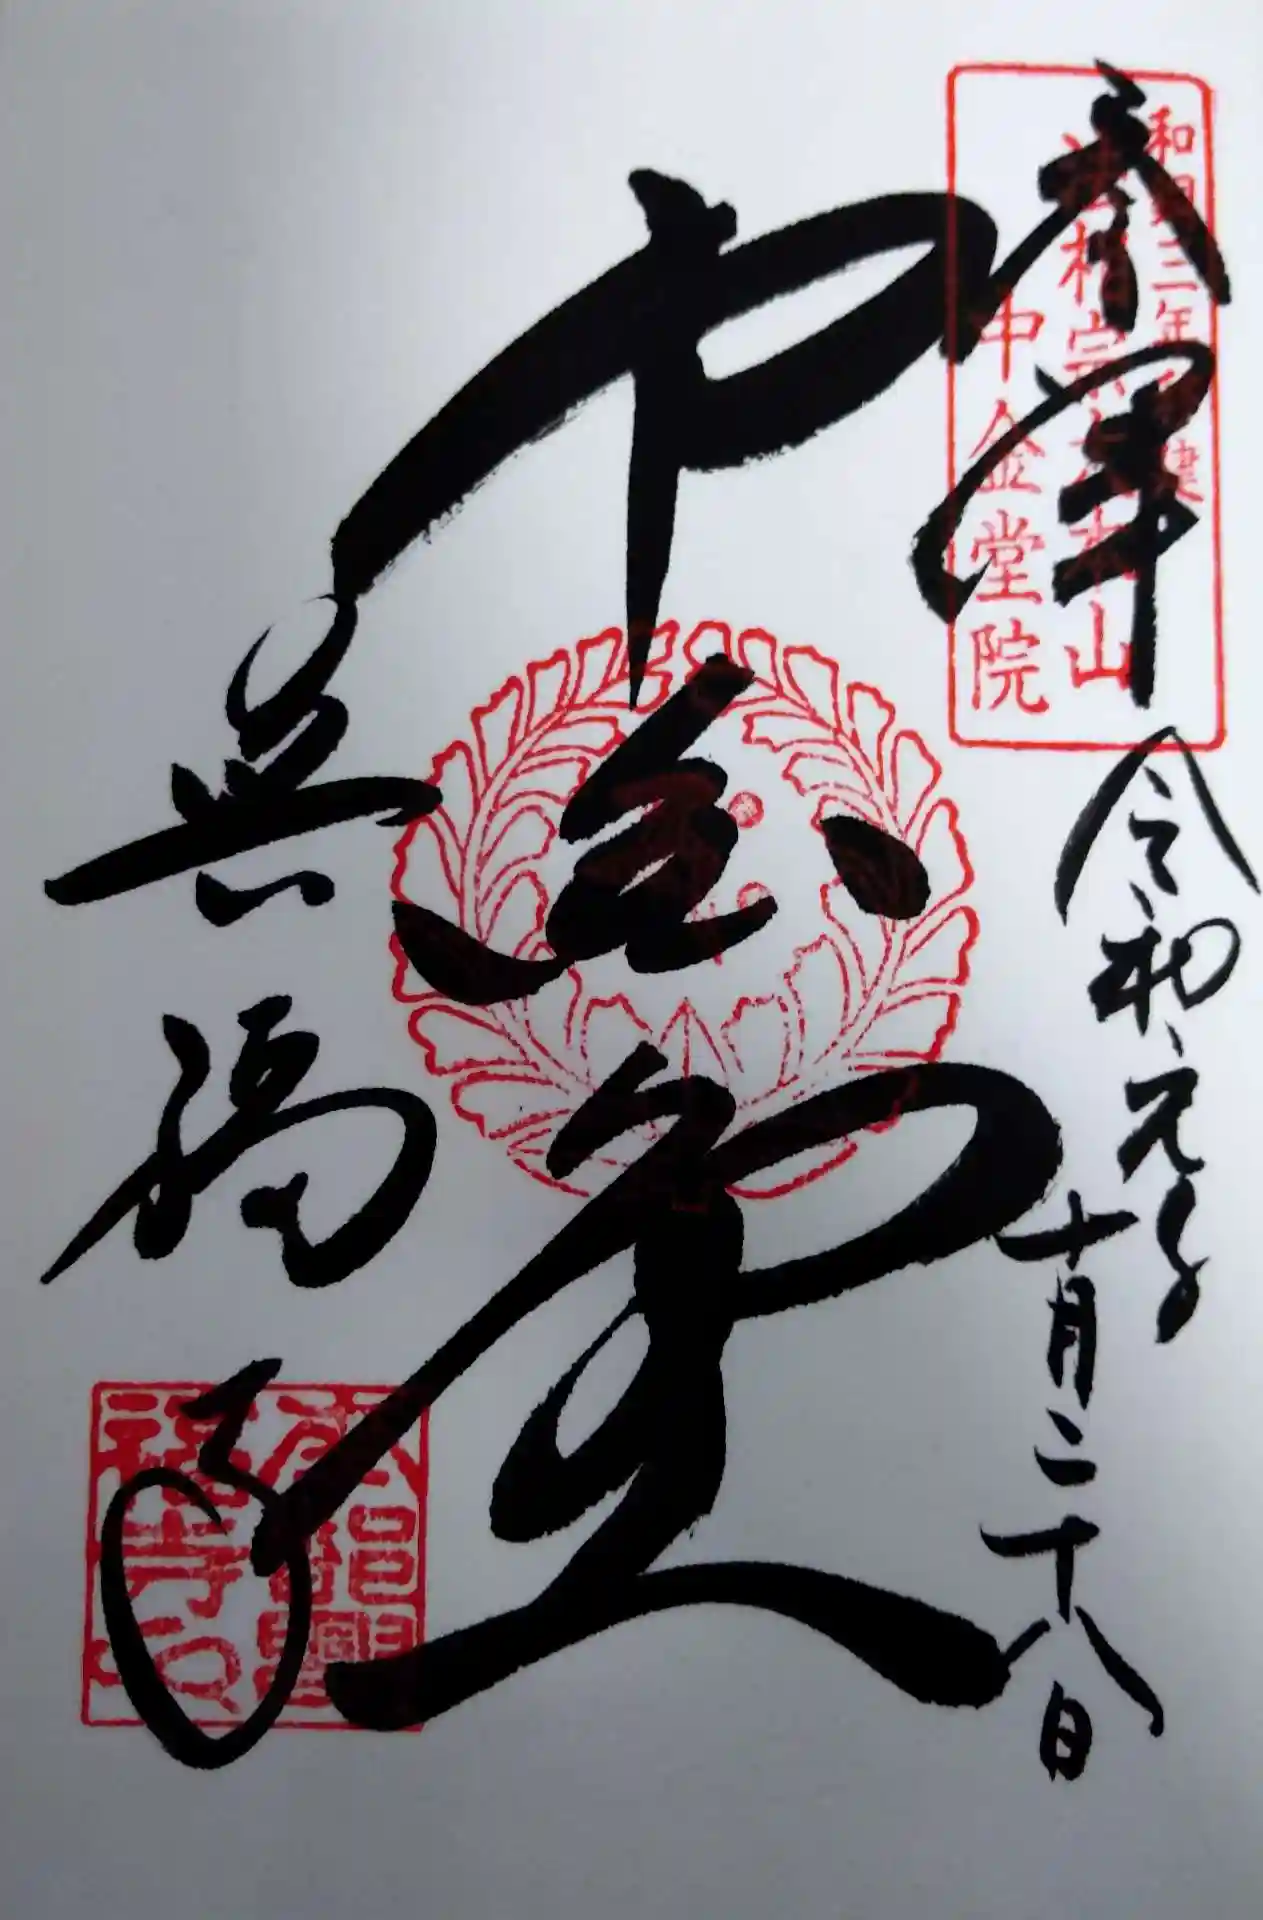 奉拝
和銅三年創建
法相宗大本山
中金堂院
令和元年
十月二十八日
中金堂
興福寺